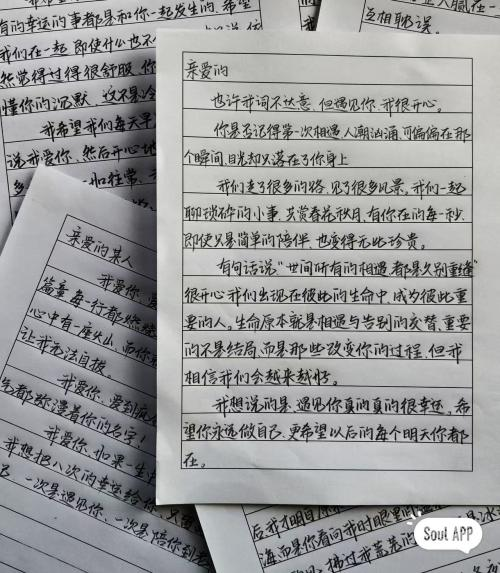 亲爱的
也许我词不达意、但遇见你、我很开心。
你是否记得第一次相遇人潮汹涌、可偏偏在那
个瞬间、目光却只落在了你身上
我们走了很多的路、见了很多风景、我们一起
聊琐碎的小事、共赏春花秋月、有你在的每一秒、
即使只是简单的陪伴、也变得无比珍贵。
有句话说“世间所有的相遇、都是久别重逢”
很开心我们出现在彼此的生命中、成为彼此重
要的人。生命原本就是相遇与告别的交替、重要
的不是结局、而是那些改变你的过程、但我
相信我们会越来越好。
我想说的是、遇见你真的真的很幸运。希
望你永远做自己、更希望以后的每个明天你都
在。
有的幸运的事都是和你一起发生的、希望
我们在一起、即使什么也不
然觉得过得很舒服、你
懂你的沉默、这不是冷
我希望我们每天早
说我爱你、然后开心地
一如往常、
互相耽误。
亲爱的某人
我爱你、
篇章每一行都
心中有一座火山、而你
让我无法自拔
我爱你、爱到
都弥漫着你的名字！
我爱你、如果一生
我想把八次的幸运给你、
一次是遇见你、一次是陪你到老
后我才明白
海而是你看向我时眼里
拂过我荒芜的
Soul APP